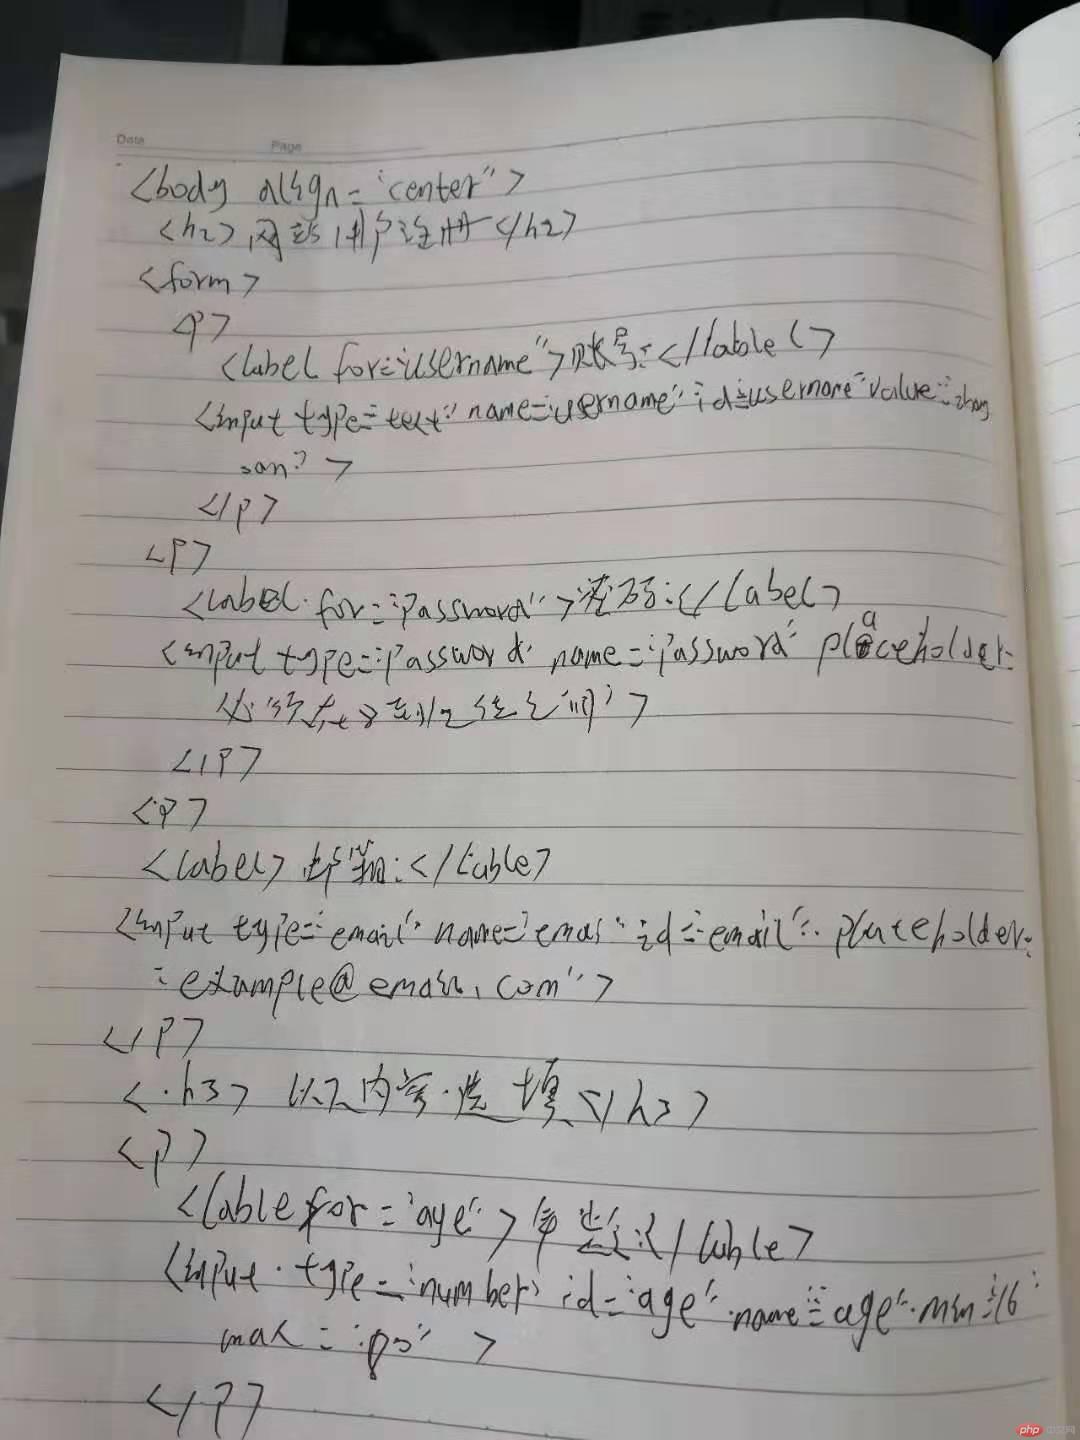 Date Page
<body align="center">
<h2>网站用户注册</h2>
<form>
<p>
<label for="username">账号:</lable>
<input type="text" name="username" id="username" value="zhang
san">
</p>
<p>
<label for="password">密码:</label>
<input type="password" name="password" placeholder=
>
</p>
<p>
<label>邮箱:</lable>
<input type="email" name="email" id="email" placeholder=
"example@email.com">
</p>
<h3>以下内容选填</h3>
<p>
<lable for="age">年龄:</lable>
<input type="number" id="age" name="age" min="16"
max= >
</p>
php